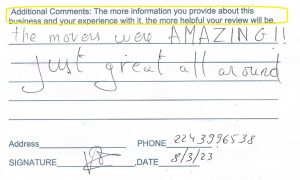 Additional Comments: The more information you provide about this
business and your experience with it, the more helpful your review will be.
the movers were AMAZING!!
just great all around
Address PHONE 2243996538
SIGNATURE DATE 8/3/23